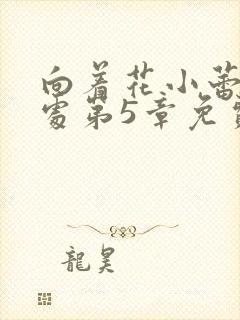 向着花小蕾
处第5章免费
龍昊